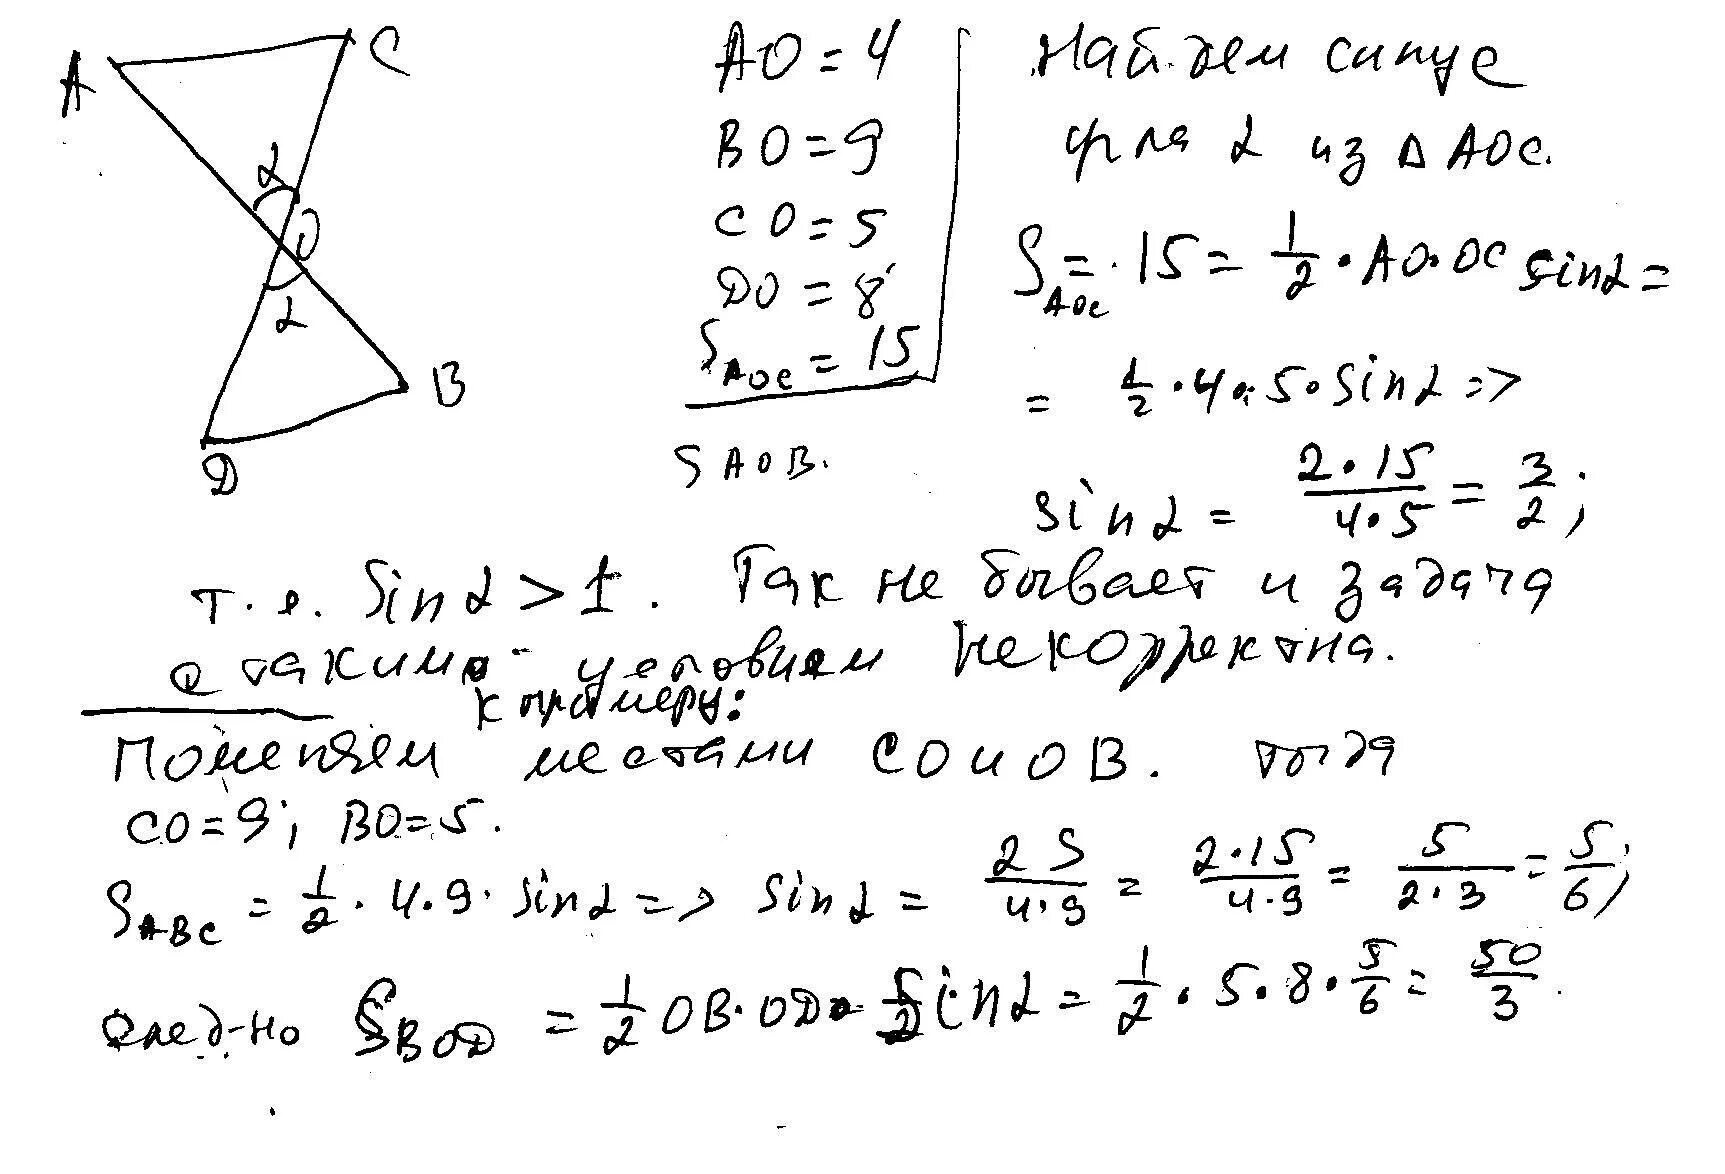 A
C
α
O
α
B
D
AO = 4
BO = 9
CO = 5
DO = 8
S AOC = 15
S AOB.
Найдем синус
угла α из Δ AOC.
S AOC = 15 = 1/2 · AO · OC sin α =
= 1/2 · 4 · 5 · sin α =>
sin α = 2 · 15 / 4 · 5 = 3/2 ;
т. е. Sin α > 1. Так не бывает и задача
с таким условием некорректна.
К примеру:
Поменяем местами CO и OB. тогда
CO = 9; BO = 5.
S ABC = 1/2 · 4 · 9 · sin α => sin α = 2 S / 4 · 9 = 2 · 15 / 4 · 9 = 5 / 2 · 3 = 5/6 ;
след-но S BOD = 1/2 OB · OD · Sin α = 1/2 · 5 · 8 · 5/6 = 50/3 .